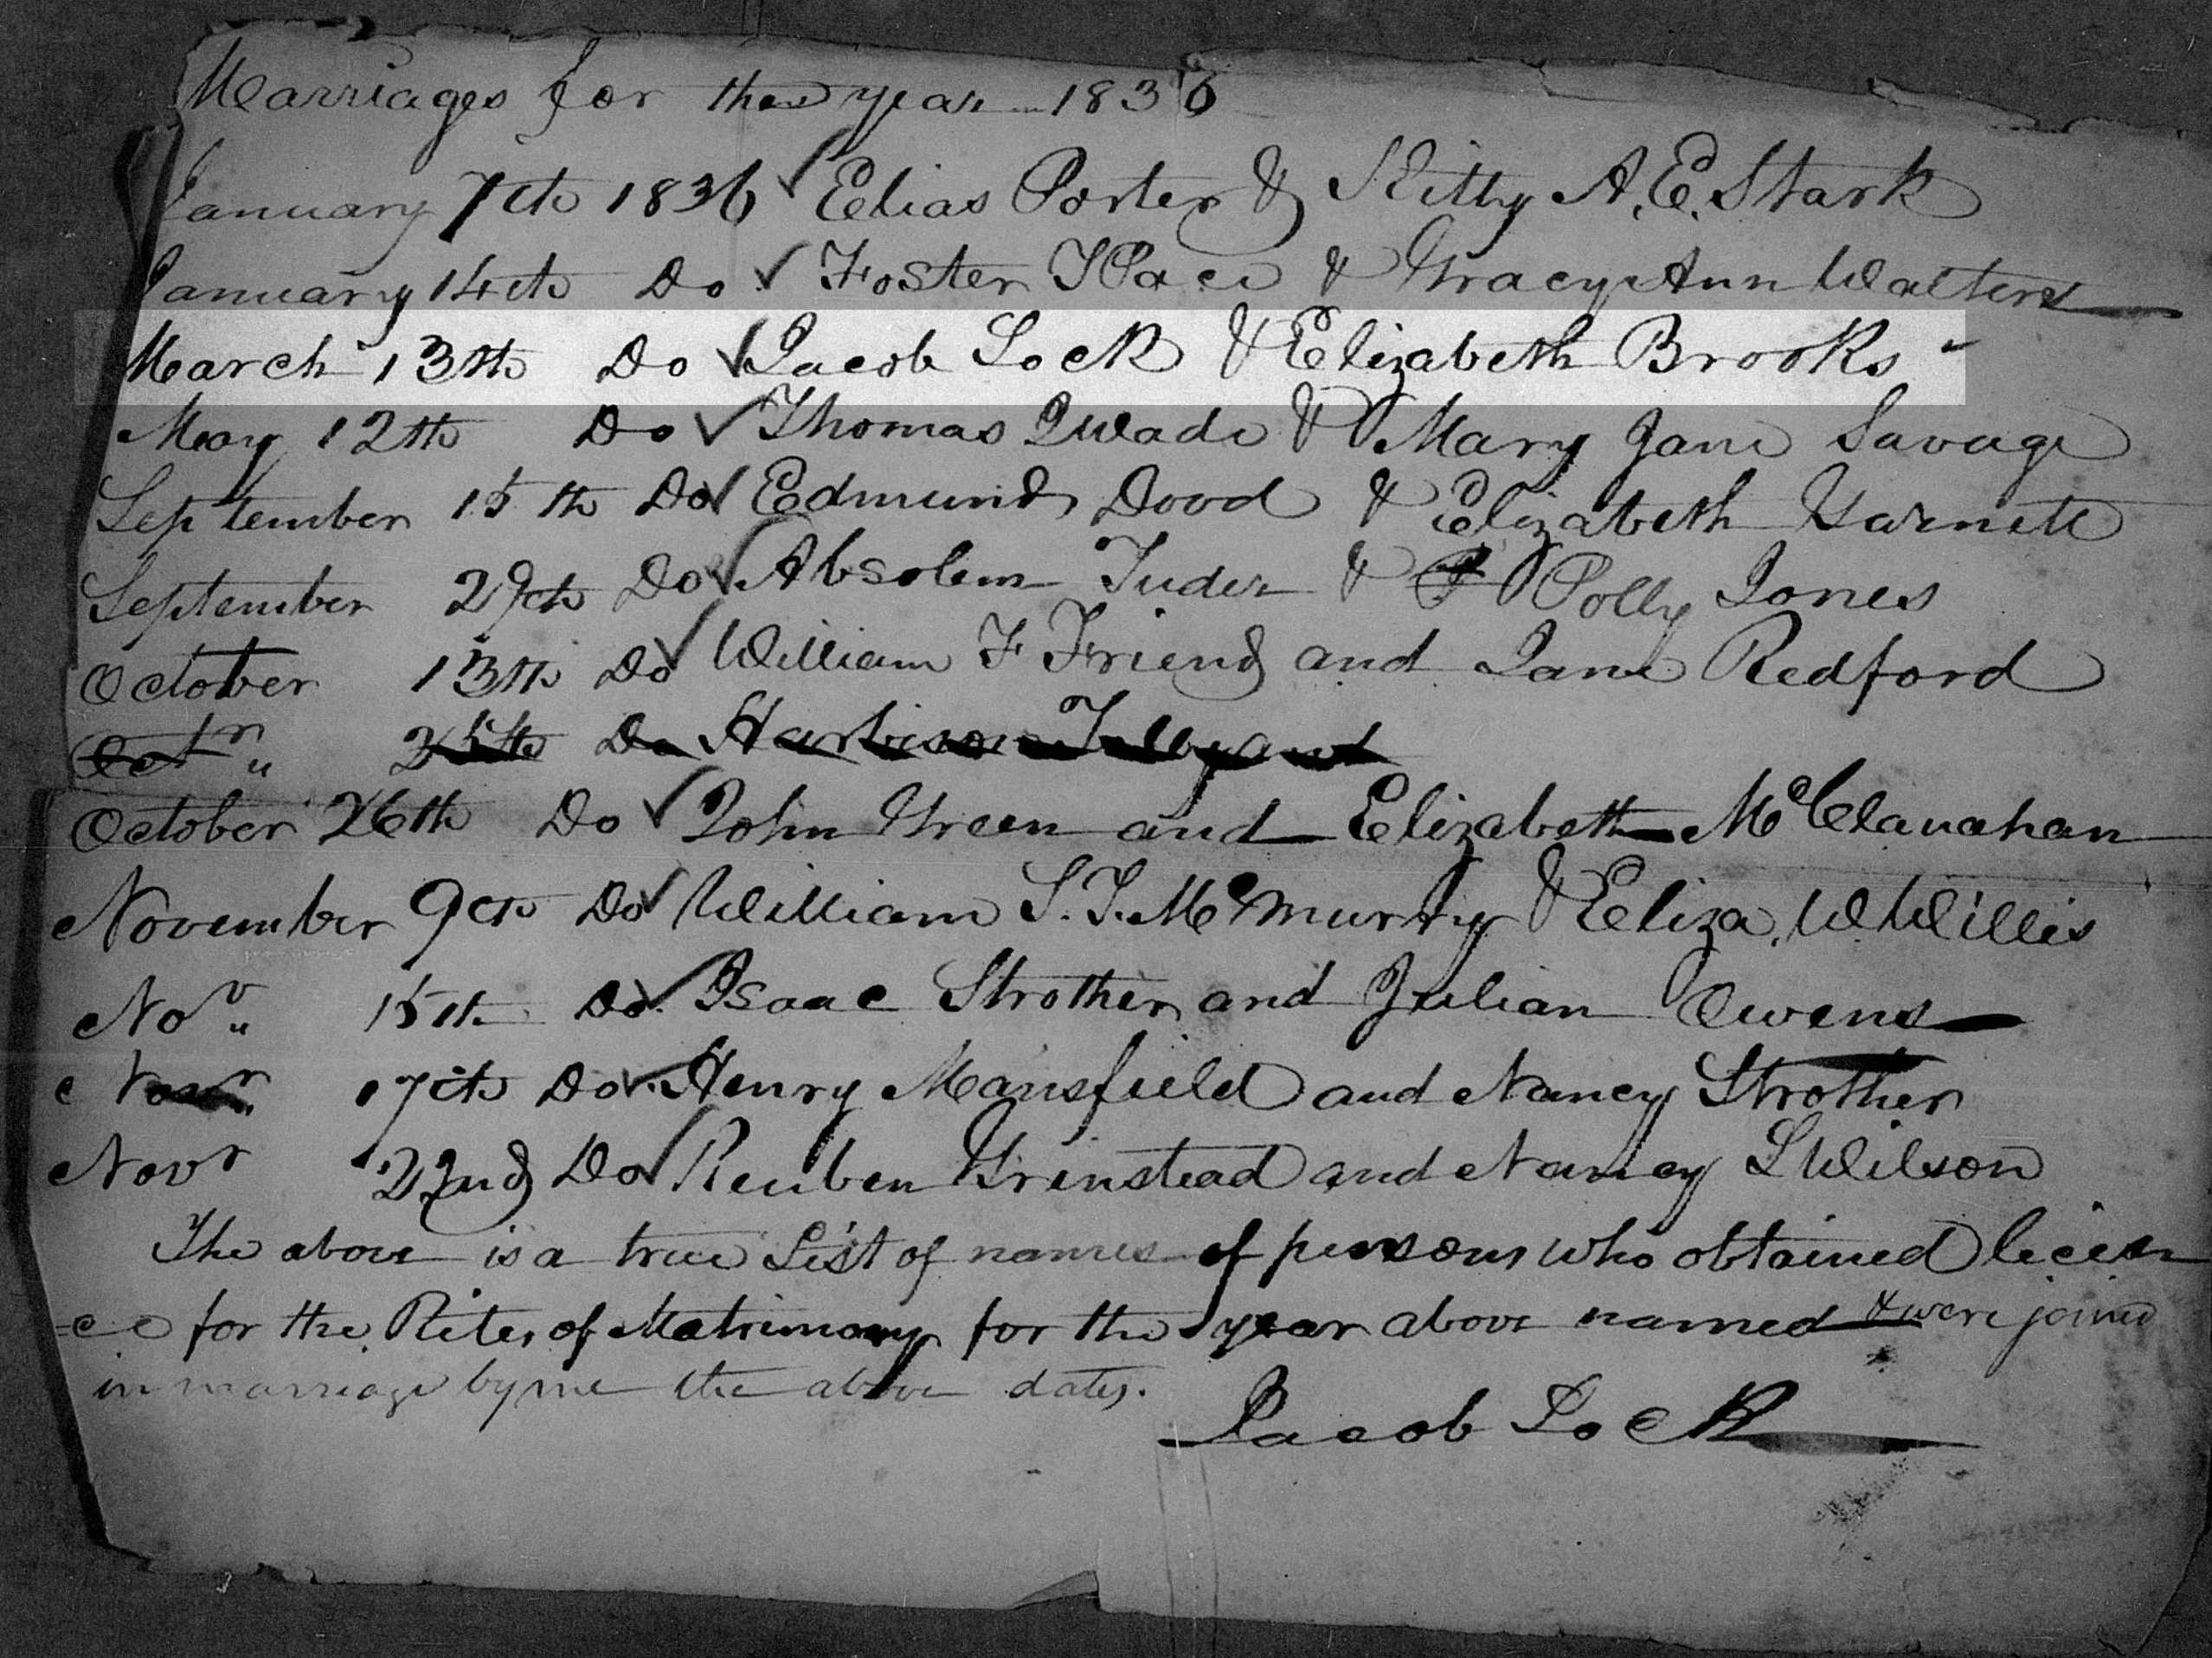 Marriages for the year 1836
January 7th 1836 Elias Porter & Kitty A. E. Stark
January 14th Do Foster T Pace & Gracy Ann Walters
March 13th Do Jacob Lock & Elizabeth Brooks
May 12th Do Thomas Q Wade & Mary Jane Savage
September 15th Do Edmund Dood & Elizabeth Garnett
September 29th Do Absolem Tuder & Polly Jones
October 13th Do William F Friend and Jane Redford
Octr 25th Do Harbison and
October 26th Do John Green and Elizabeth McClanahan
November 9th Do William S. T. McMurtry & Eliza. W Willis
Nov 15th Do Isaac Strother and Julian Owens
Novr 17th Do Henry Mansfield and Nancy Strother
Novr 22nd Do Reuben Grinstead and Nancy L Wilson
The above is a true List of names of persons who obtained licen
=ce for the Rites of Matrimony for the year above named & were joined
in marriage by me the above dates.
Jacob Lock